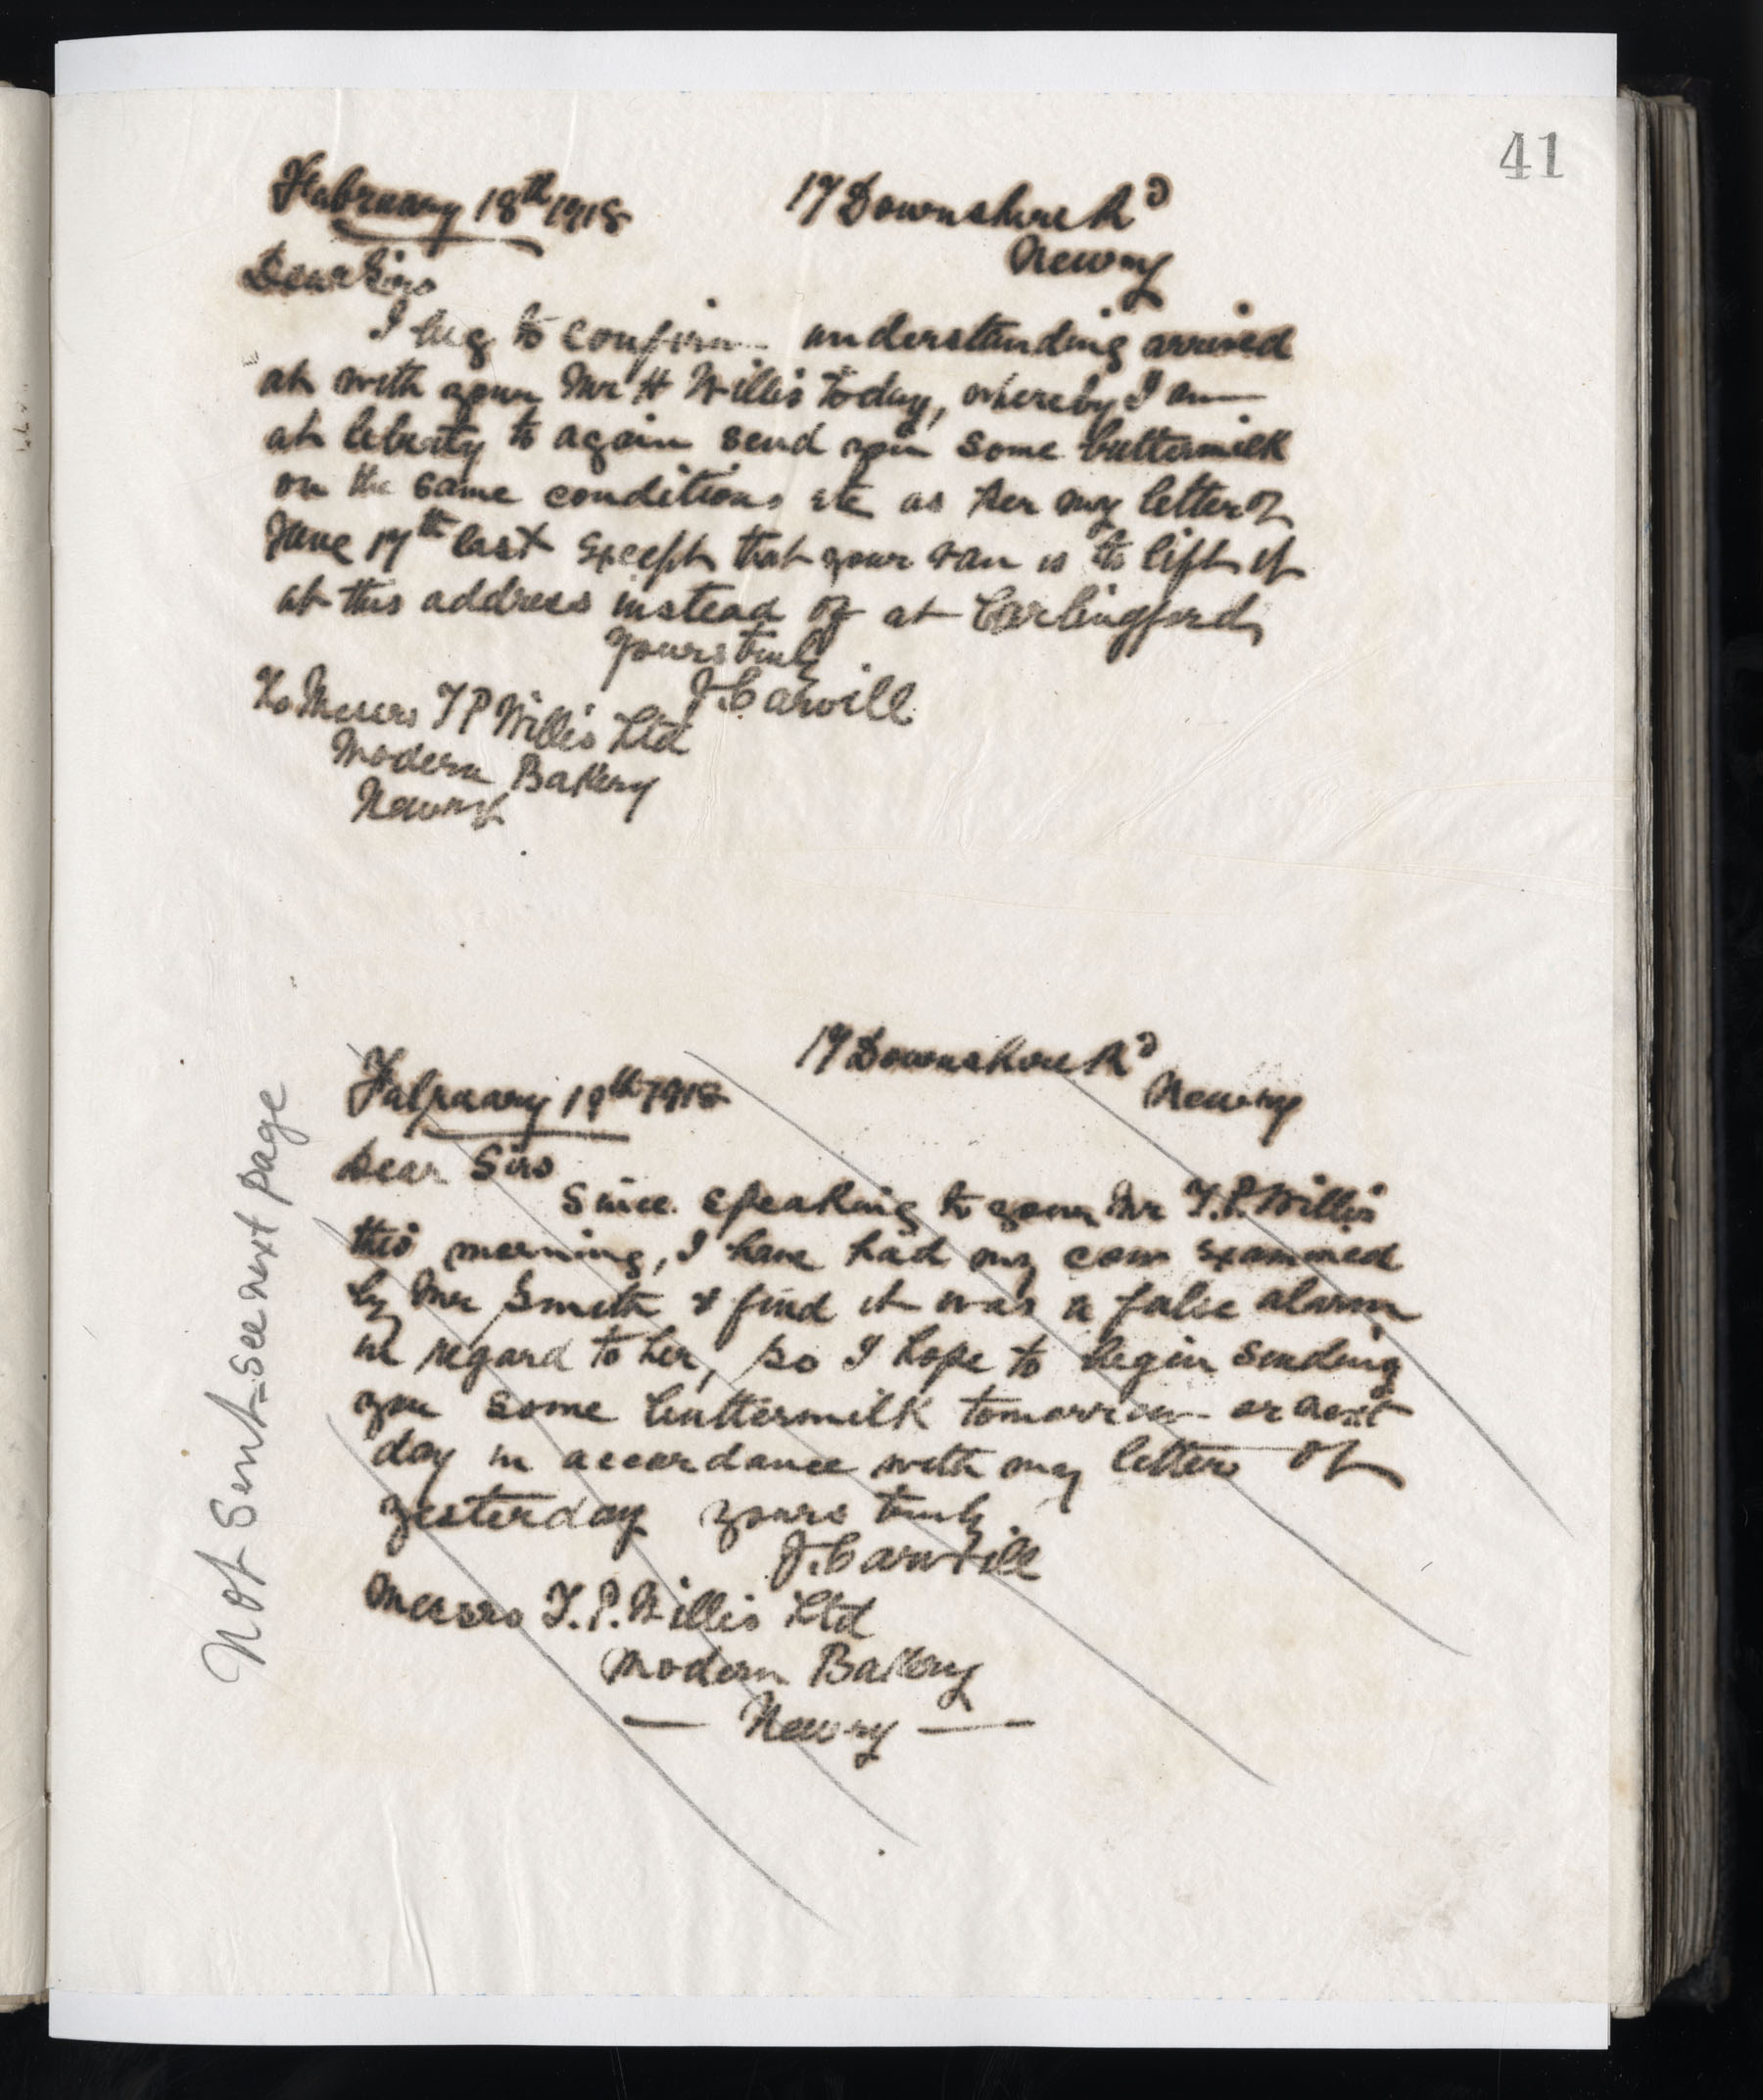 41
February 18th 1918
17 Downshire Rd
Newry
Dear Sirs
I beg to confirm understanding arrived
at with your Mr H Willis today, whereby I am
at liberty to again send you some buttermilk
on the same conditions etc as per my letter of
June 17th last except that your van is to lift it
at this address instead of at Carlingford,
yours truly
J. Carvill
To Messrs T P Willis Ltd
Modern Bakery
Newry
17 Downshire Rd
Newry
February 19th 1918
Dear Sirs
Since speaking to your Mr T. P. Willis
this morning, I have had my cow examined
by Mr Smith & find it was a false alarm
in regard to her, so I hope to begin sending
you some buttermilk tomorrow or next
day in accordance with my letter of
yesterday yours truly
J. Carvill
Messrs T. P. Willis Ltd
Modern Bakery
— Newry —
Not Sent - See next page